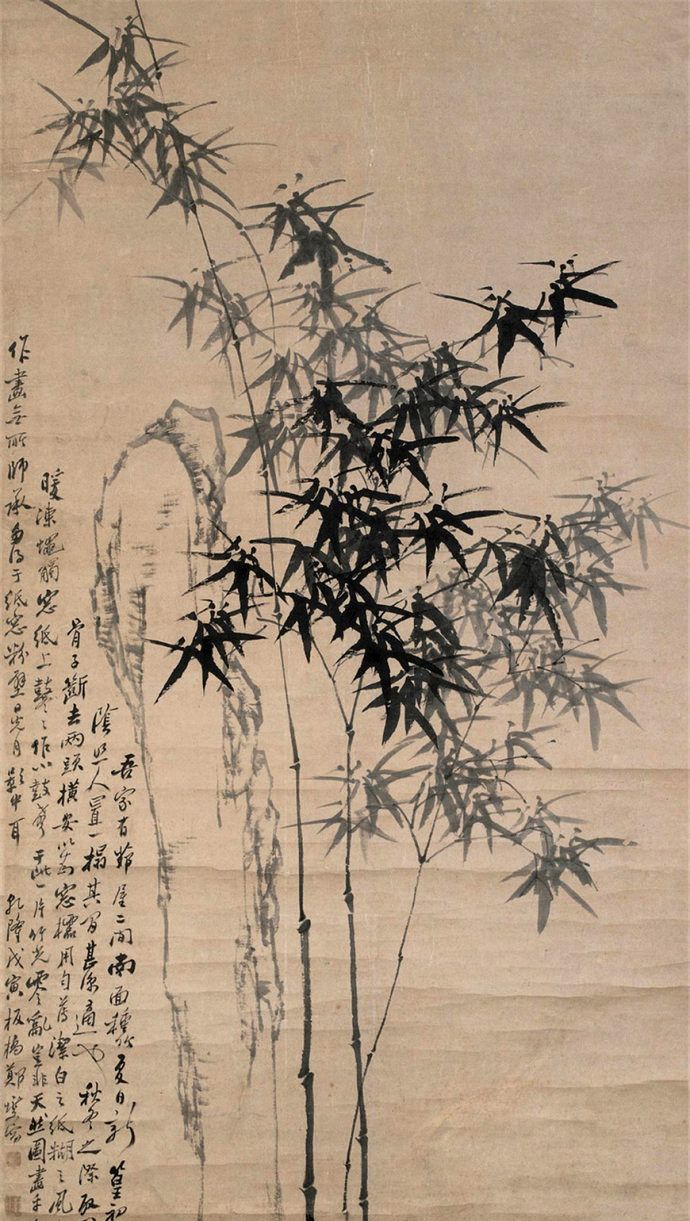 吾家有茆屋二間南面種竹夏日新篁初
陰照人置一榻其間甚涼適也秋冬之際取
骨子斷去兩頭橫安以為窓櫺用勻薄潔白之紙糊之風
暖凍蠅觸窓紙上鼕〻作小鼓聲于此一片竹光零亂豈非天然圖畫乎
作畫無所師承多得于紙窓粉壁日光月影中耳 乾隆戊寅板橋鄭燮寫